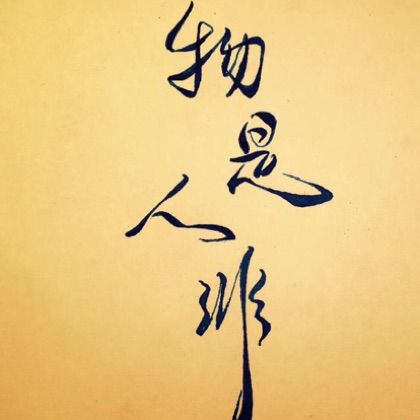 物是人非